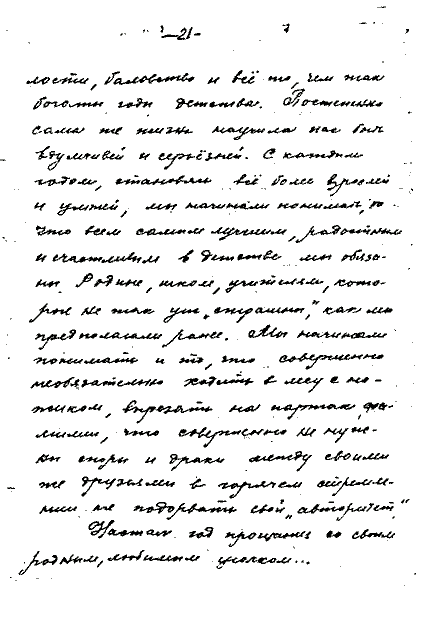 -21-
лости, баловство и всё то, чем так
богаты годы детства. Постепенно
сама же жизнь научила нас быть
вдумчивей и серьёзней. С каждым
годом, становясь всё более взрослей
и умней, мы начинали понимать,
что всем самым лучшим, радостным
и счастливым в детстве мы обяза-
ны Родине, школе, учителям, кото-
рые не так уж "страшны", как мы
предполагали ранее. Мы начинали
понимать и то, что совершенно
необязательно ходить в лесу с но-
жиком, вырезать на партах фа-
милии, что совершенно не нуж-
ны споры и драки между своими
же друзьями в горячем стремле-
нии не подорвать свой "авторитет".
Настал год прощания со своим
родным, любимым